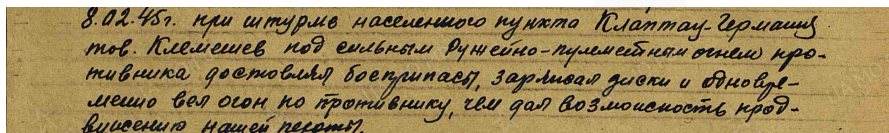 8.02.45г. при штурме населенного пункта Клаптау-Германия
тов. Клемешев под сильным ружейно-пулеметным огнем про-
тивника доставлял боеприпасы, заряжал диски и одновре-
менно вел огон по противнику, чем дал возможность прод-
вижению нашей пехоты.